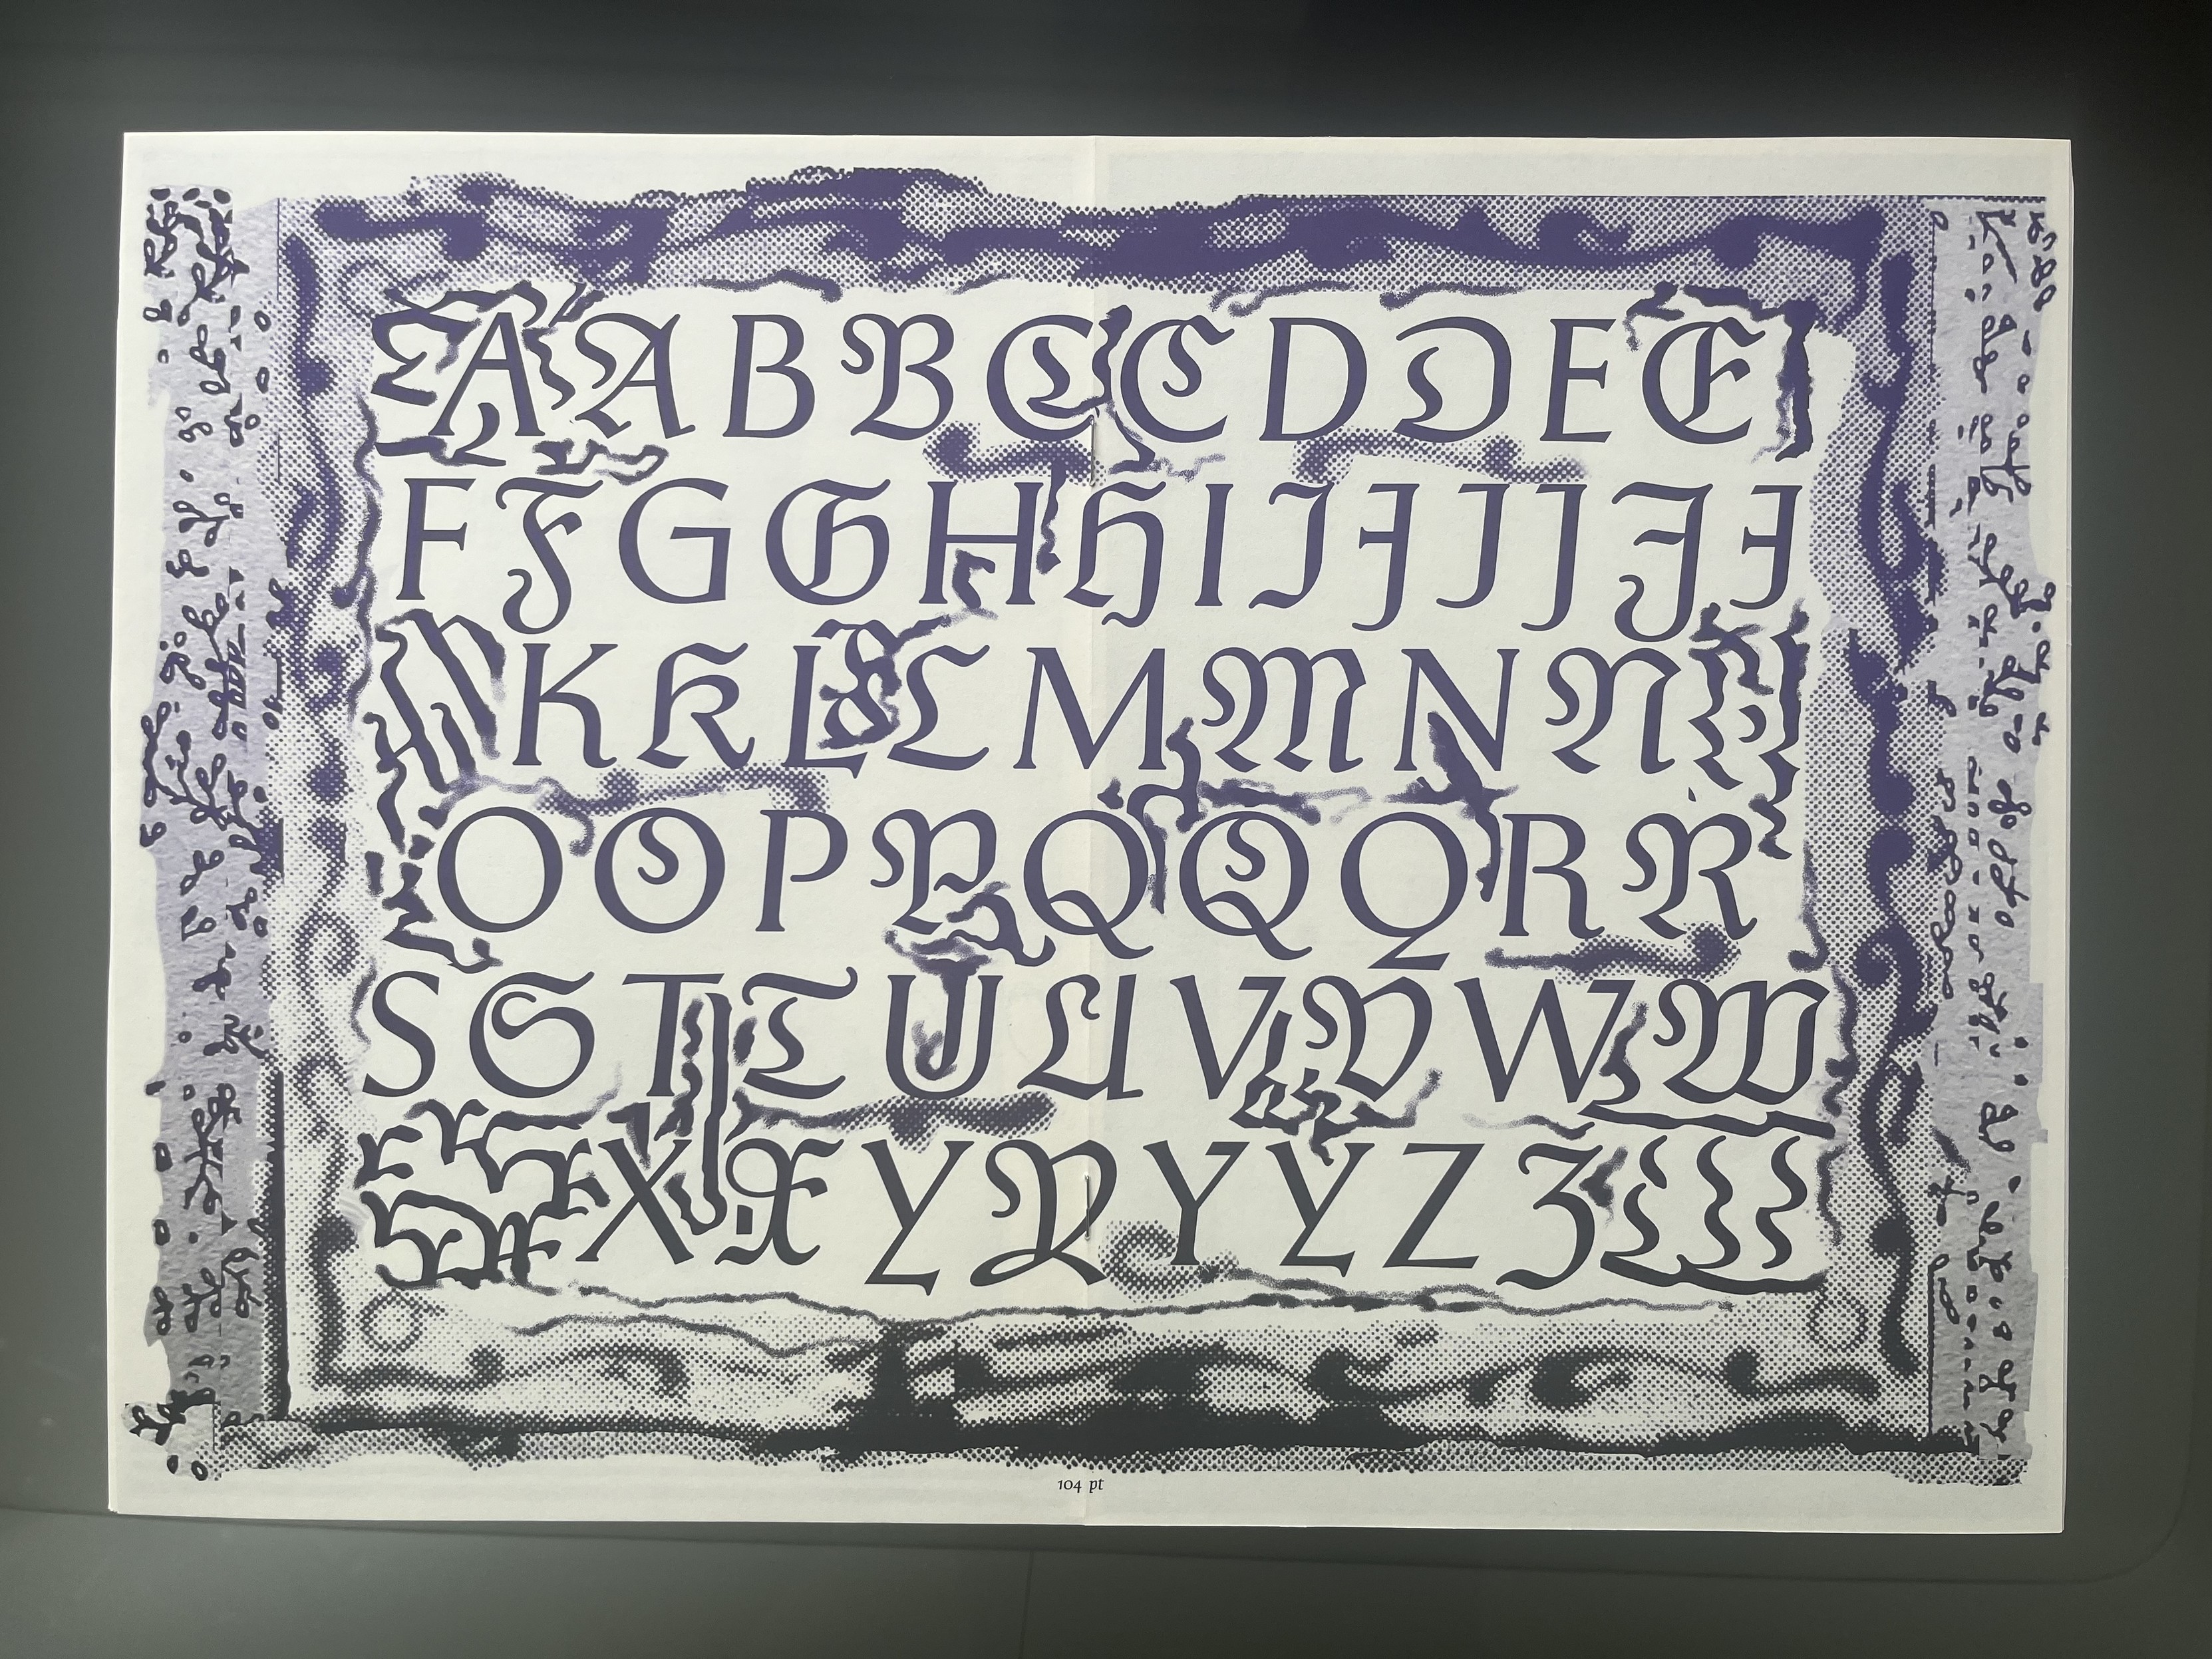 A A B B C C D D E E
F F G G H H I I J J J J J
K K L L M M N N
O O P P Q Q Q R R
S S T T U U V V W W
X X Y Y Y Y Z Z
104 pt